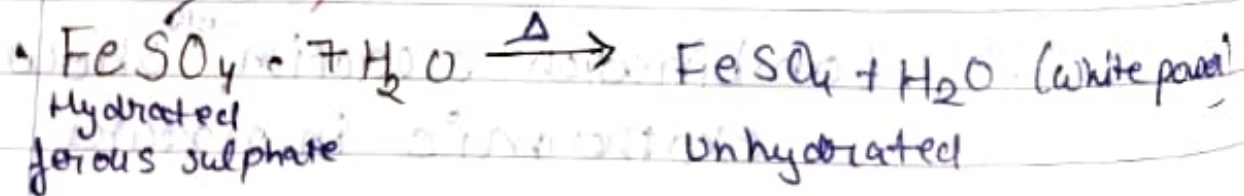 • FeSO4 • 7H2O —Δ→ FeSO4 + H2O (white
Hydrated
ferous sulphate unhydrated